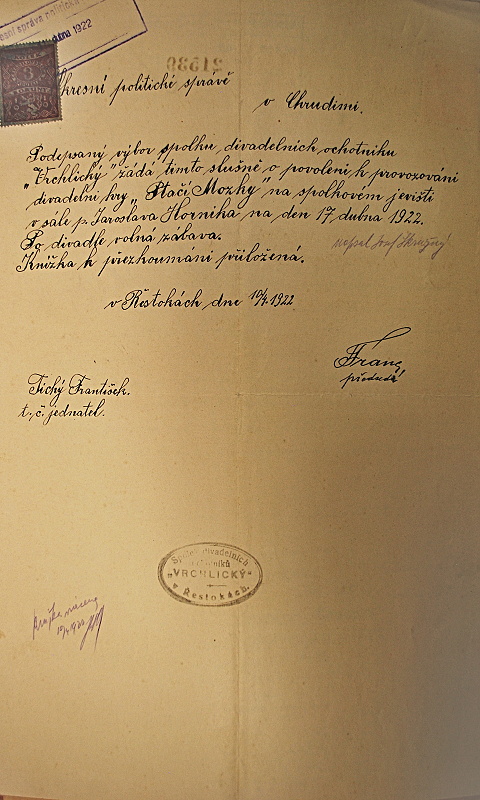 správa politická
dubna 1922
21536
3
Okresní politické správě
v Chrudimi.
Podepsaný výbor spolku divadelních ochotniku
„Vrchlický" žádá tímto slušně o povolení k provozování
divadelní hry „Ptačí Mozky" na spolkovém jevišti
v sále p. Jaroslava Horníka na den 17 dubna 1922.
Po divadle volná zábava.
napsal Josef
Knížka k přezhoumaní přiložená.
v Řestokách dne 10/4. 1922
Franc
předseda
Tichý František.
t. č. jednatel.
Spolek divadelních
ochotníků
„VRCHLICKÝ"
v Řestokách.